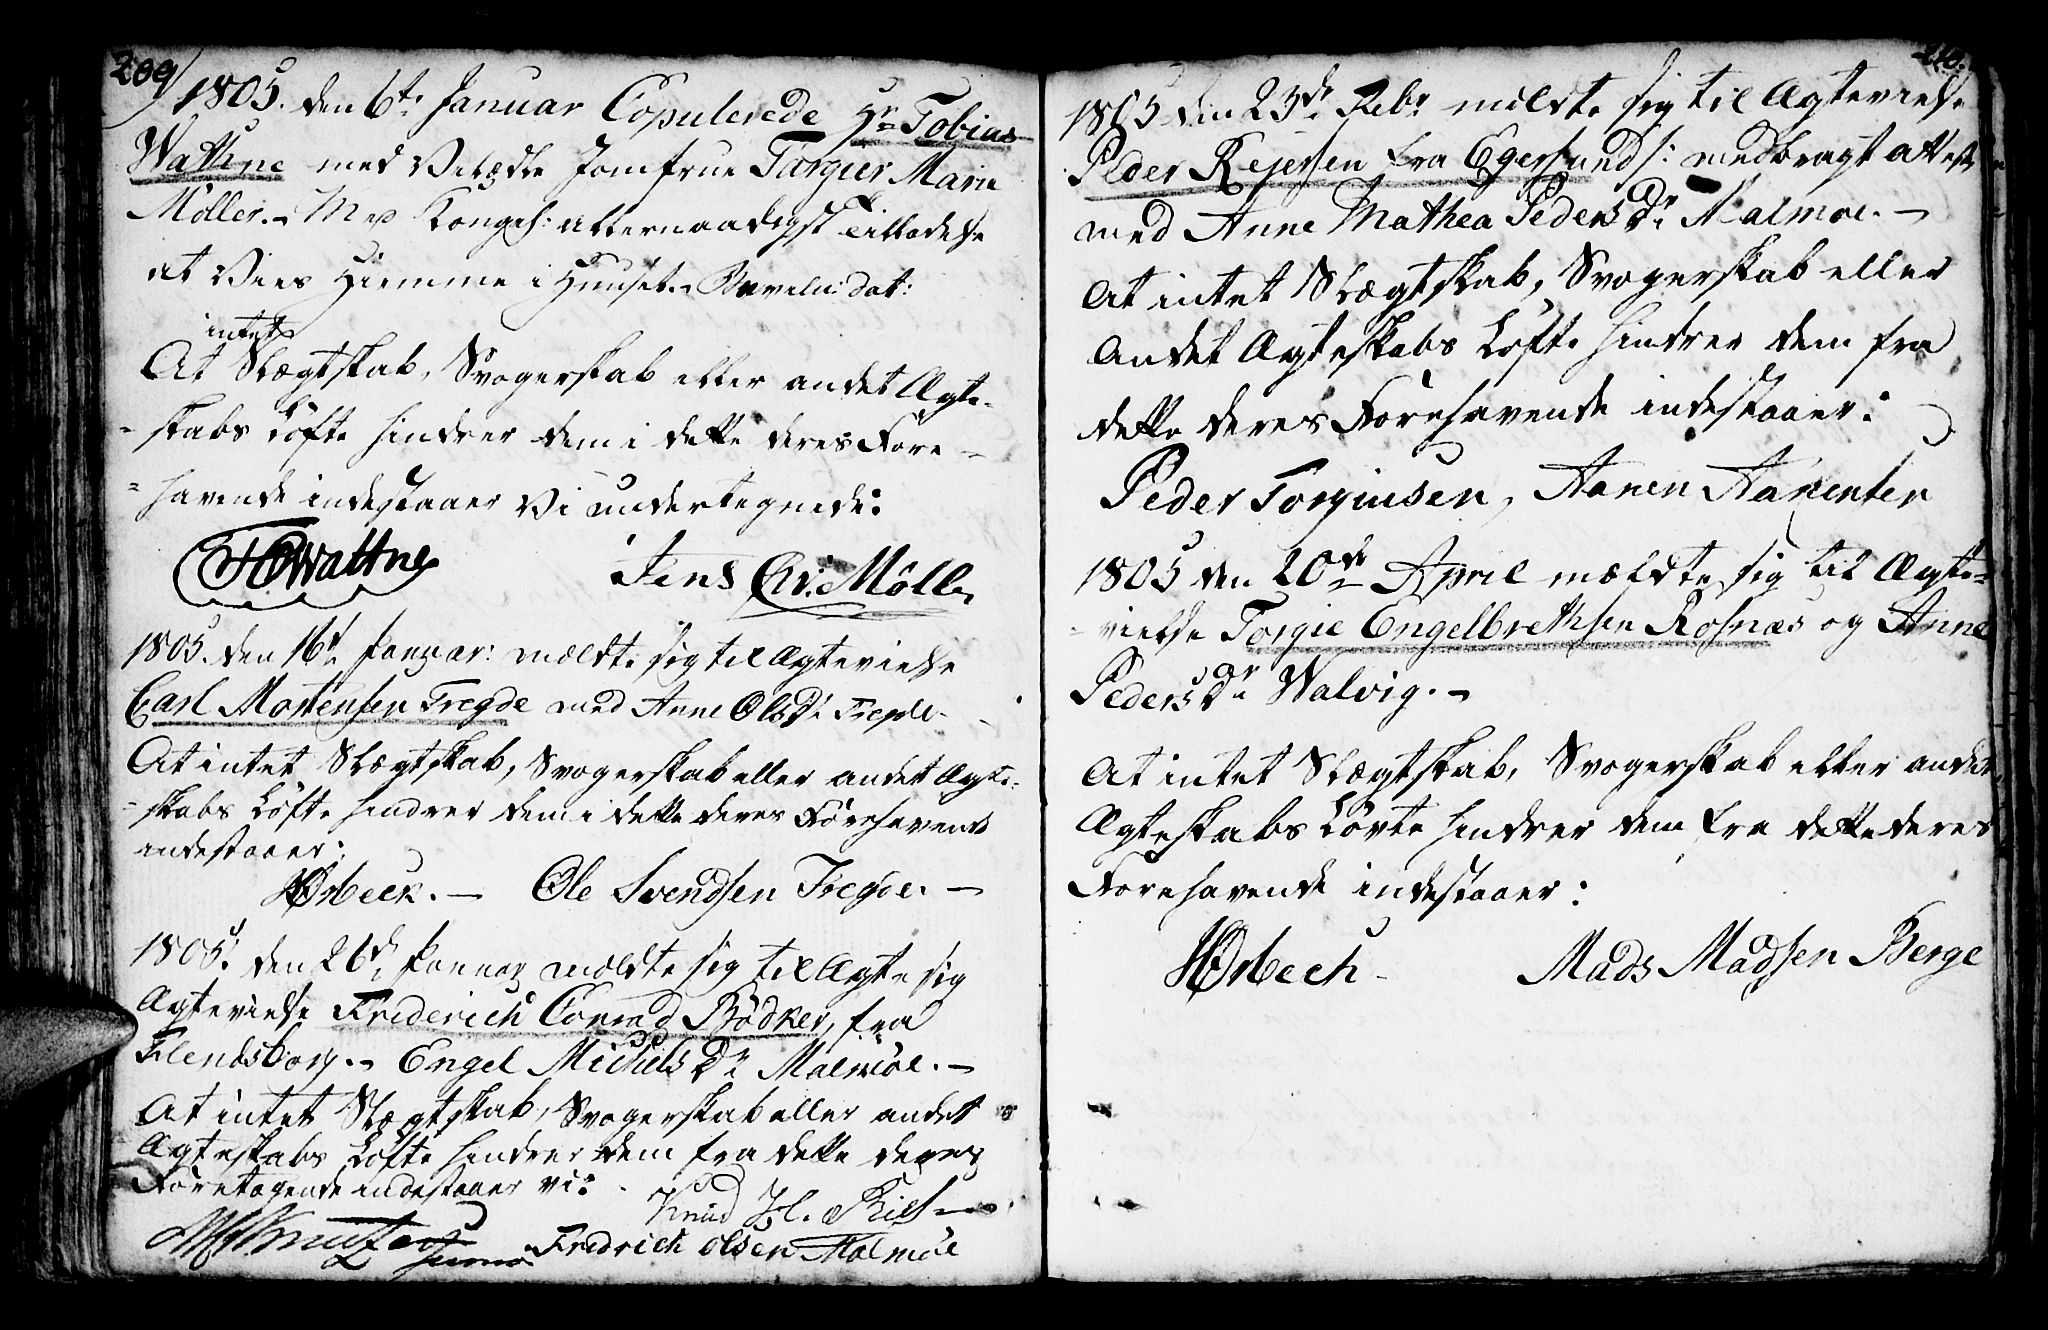 209/
1805. den 6te Januar Copulerede Hr Tobias
Wathne med Velædle Jomfrue Targier Marie
Möller. – Med Kongel: allernaadigst Tilladelse
at Vies Hiemme i Huuset. –
intet
At Slægtskab, Svogerskab eller andet Ægte-
-skabs Löfte hindrer dem i dette deres Fore-
-havende indestaaer Vi undertegnede:
Wattne Jens Chr: Mölle
1805. den 16de Januar: meldte sig til Ægtevielse
Carl Mortensen Tregde med Anne OlsDr Tregde. –
At intet Slægtskab, Svogerskab eller andet Ægte-
-skabs Löfte hindrer dem i dette deres Forehavende
indestaaer:
Örbeck. – Ole Svendsen Tregde. –
1805. den 26de Januar meldte sig til Ægte sig
Ægtevielse Friderich Conrad Bödker, fra
Flendsborg. – Engel MichelsDr Malmöe. –
At intet Slægtskab, Svogerskab eller andet
Ægteskabs Löfte hindrer dem fra dette deres
Foretagende indestaaer vi:
Knud H.
Knutzen Fredrich Olsen Malmöe
210.
1805 den 23de Febr meldte sig til Ægtevielse
Peder Rejersen fra Egersund /: medbragt attest
med Anne Mathea PedersDr Malmöe. –
At intet Slægtskab, Svogerskab eller
Andet Ægteskabs Löfte hindrer dem fra
dette deres Forehavende indestaaer:
Peder Torgiusen, Aanen Aanensen
1805 den 20de April meldte sig til Ægte-
-vielse Torgie Engelbrethsen Rosnæs og Anne
PedersDr Walvig. –
At intet Slægtskab, Svogerskab eller andet
Ægteskabs Lövte hindrer dem fra dette deres
Forehavende indestaaer:
Örbech – Mads Madsen Berge